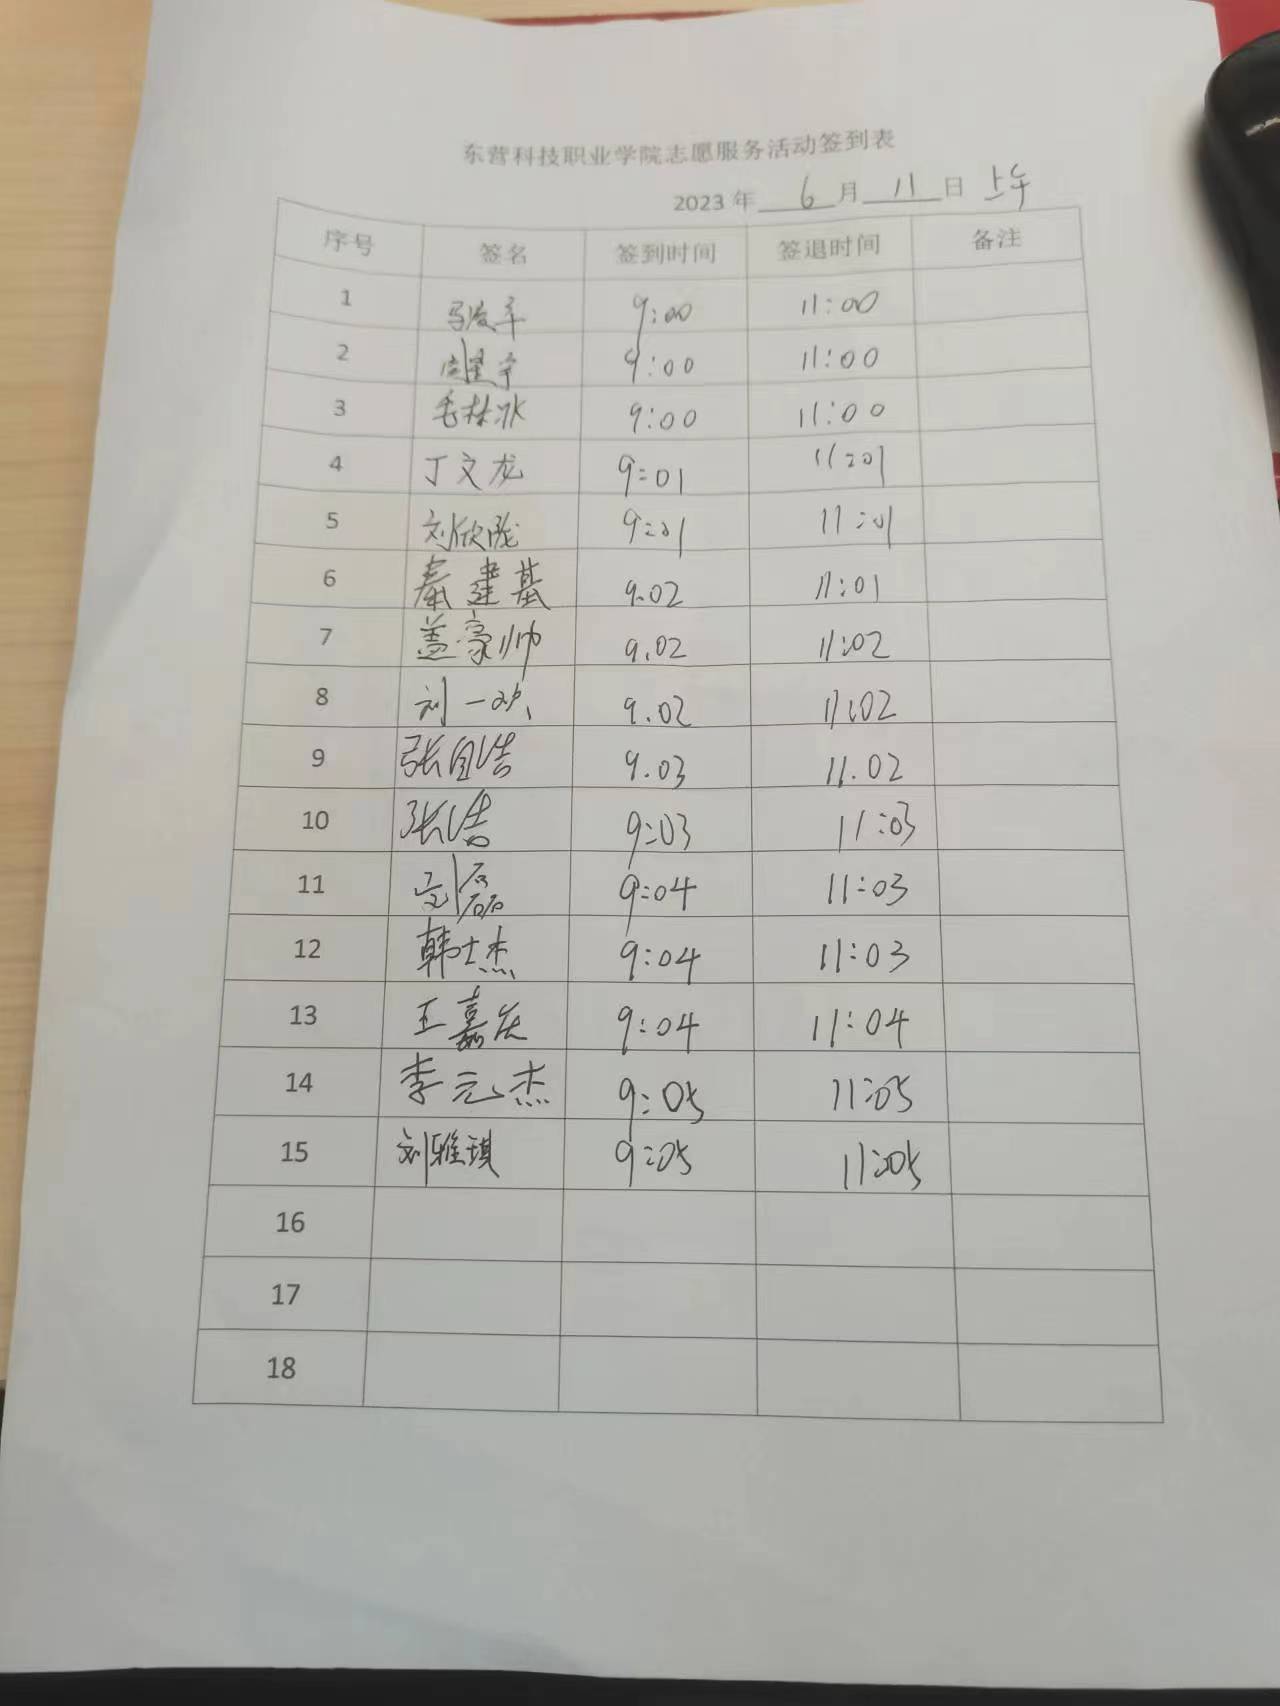 东营科技职业学院志愿服务活动签到表
2023 年 6 月 11 日 上午
序号 签名 签到时间 签退时间 备注
1 9:00 11:00
2 9:00 11:00
3 毛林冰 9:00 11:00
4 丁文龙 9:01 11:01
5 刘欣陇 9:01 11:01
6 秦建基 9.02 11:01
7 盖豪帅 9.02 11:02
8 刘一 9.02 11:02
9 张自浩 9.03 11.02
10 张浩 9:03 11:03
11 刘磊 9:04 11:03
12 韩士杰 9:04 11:03
13 王嘉庆 9:04 11:04
14 李元杰 9:05 11:05
15 刘雅琪 9:05 11:05
16
17
18